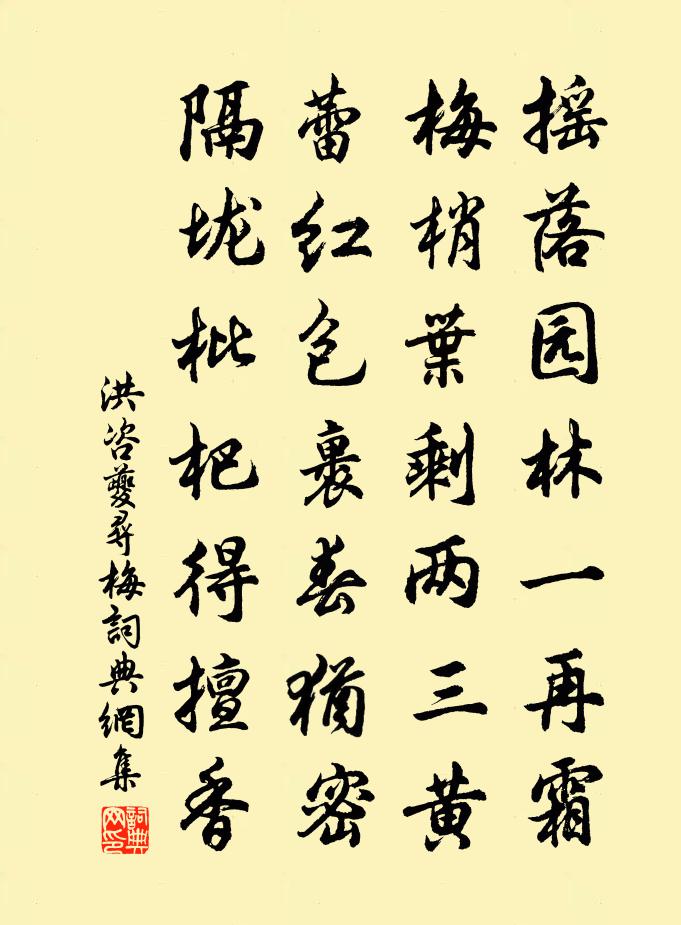 摇落园林一再霜
梅梢葉剩两三黄
蕾红包裹春犹密
隔垅枇杷得擅香
洪咨夔尋梅詞典網集
詞典
网印